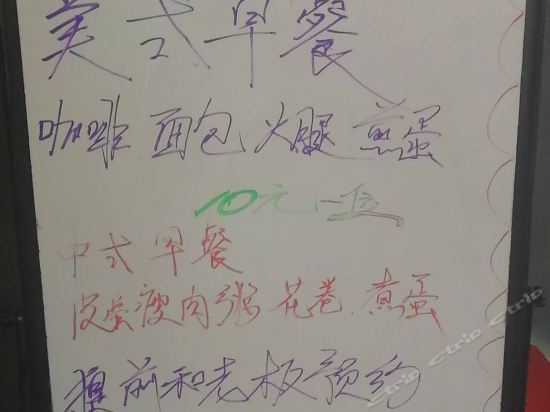 美式早餐
咖啡 面包 火腿 煎蛋
10元一位
中式早餐
皮蛋瘦肉粥、花卷、煮蛋
提前和老板预约
Ctrip Ctrip Ctrip